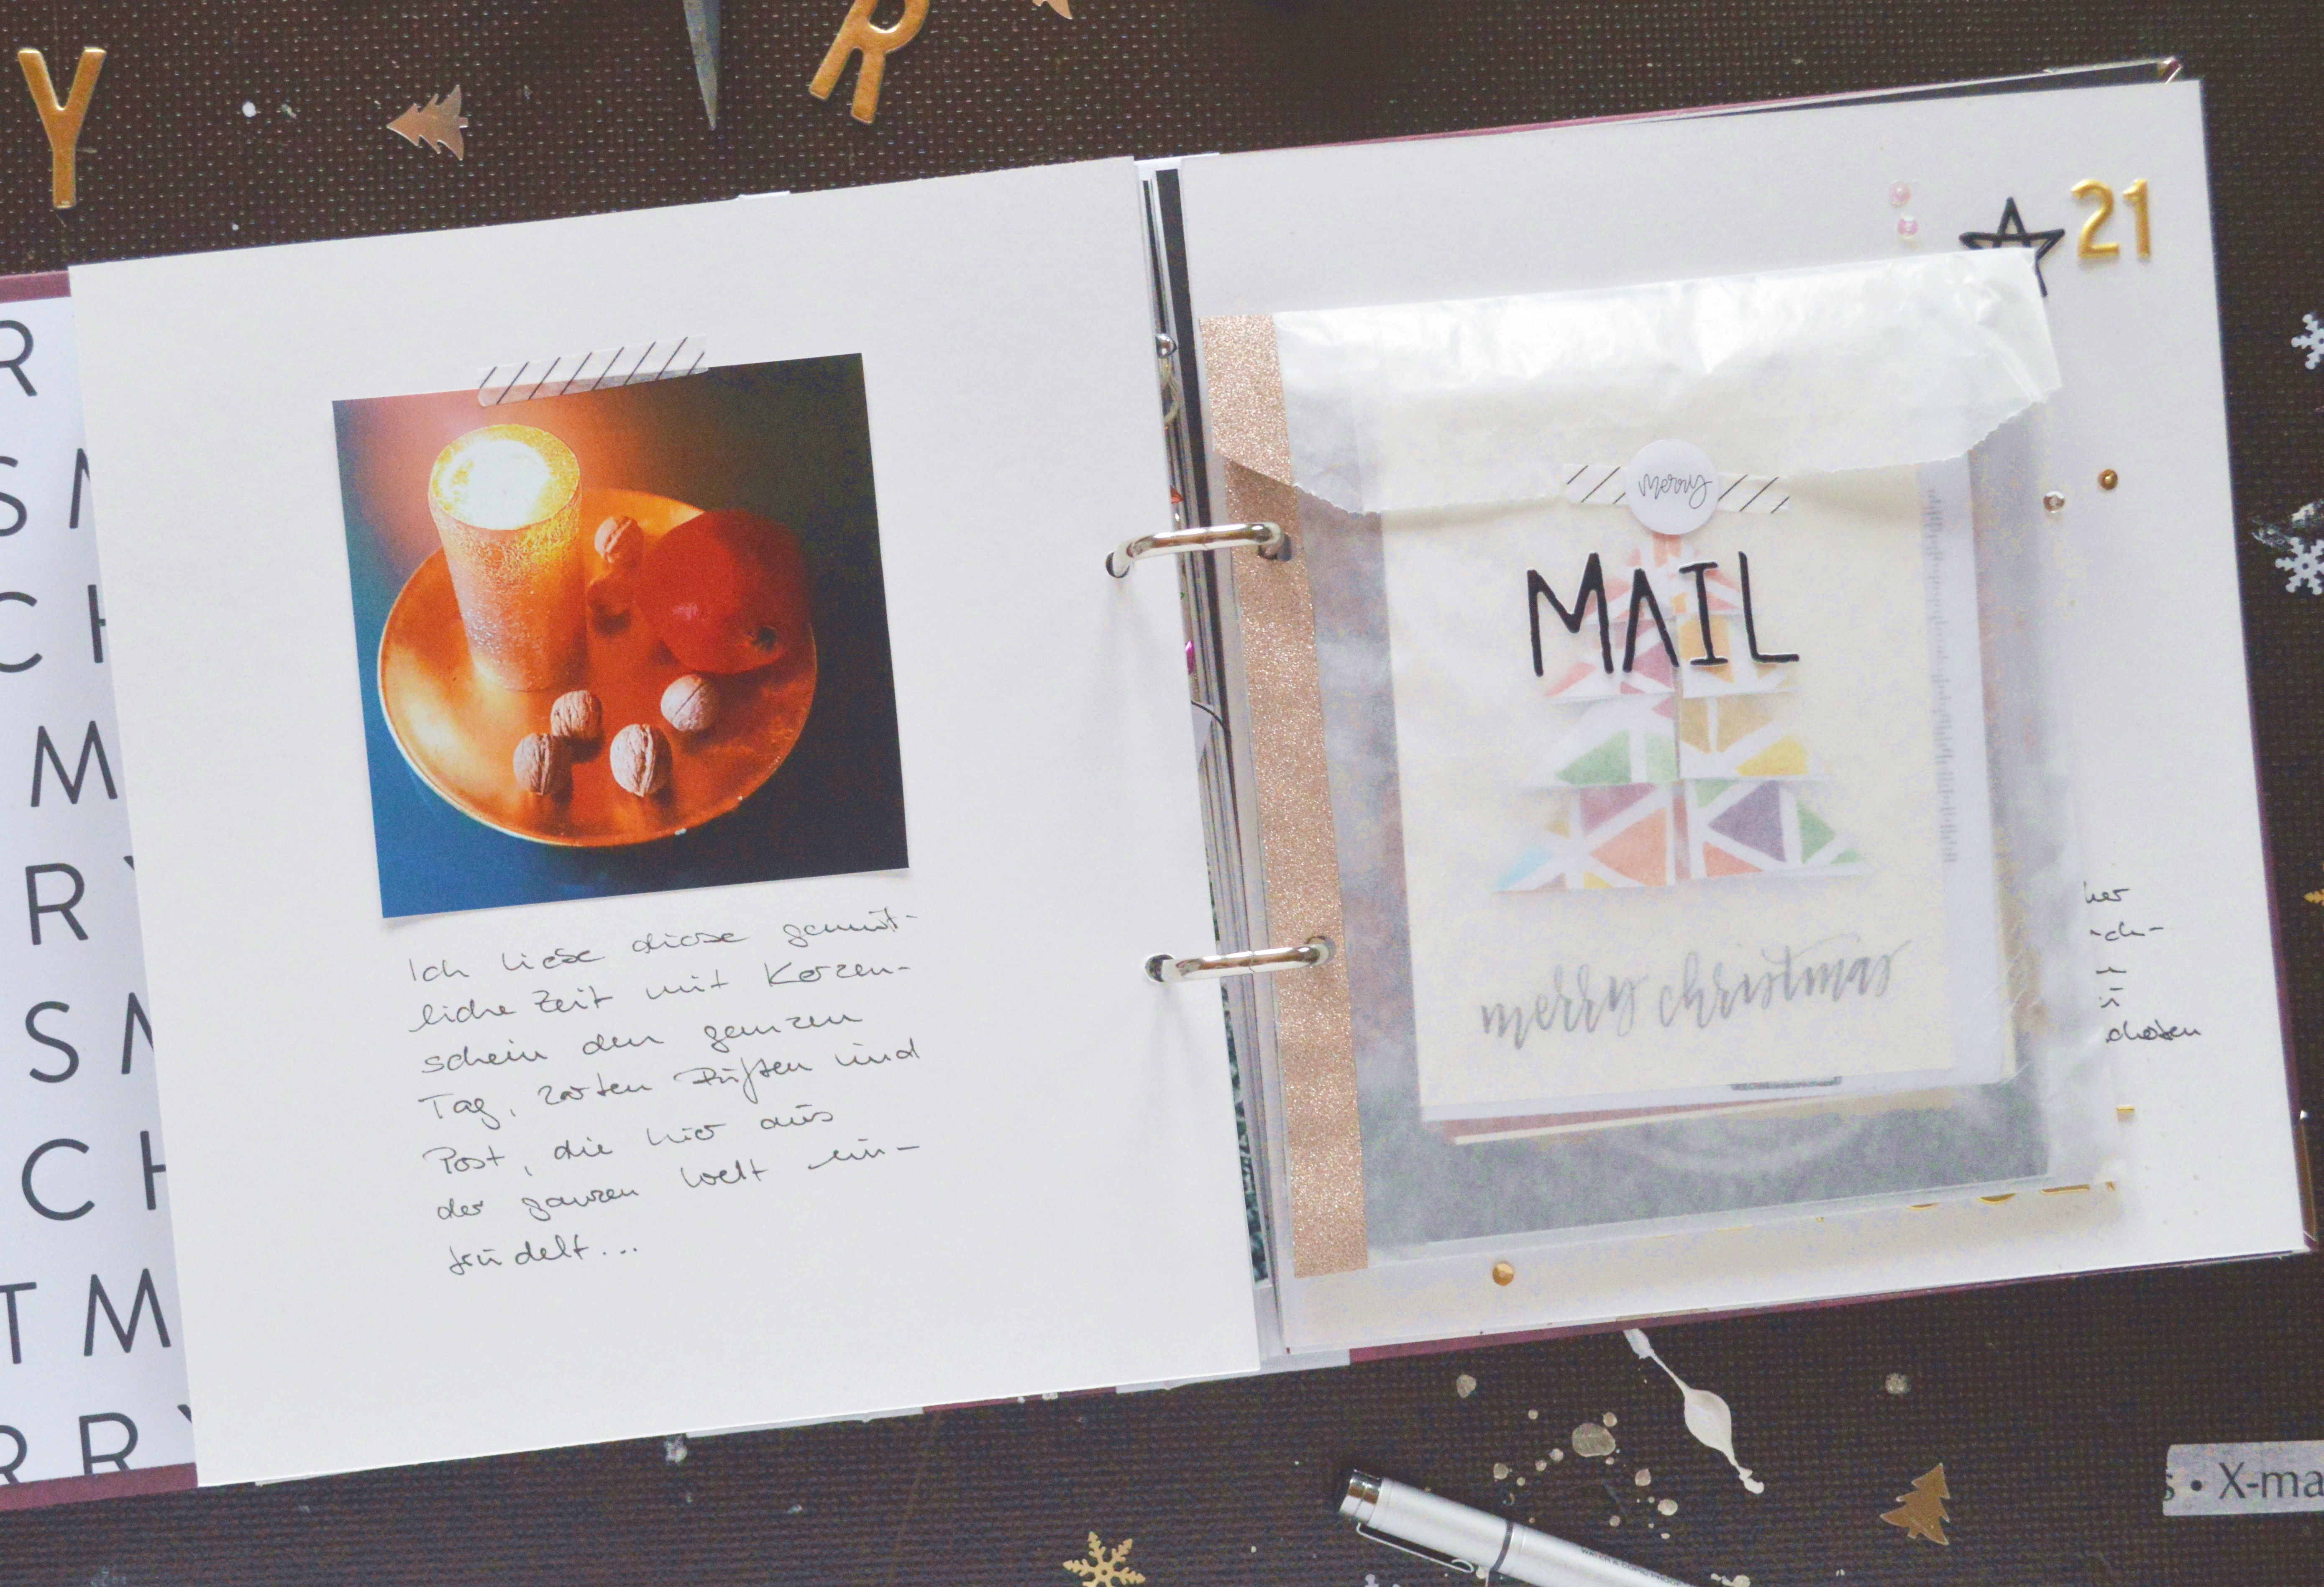 Y
R
R
S M
C H
M
R Y
S M
C H
T M
R R Y
Ich liebe diese gemüt-
liche Zeit mit Kerzen-
schein den ganzen
Tag, zarten Düften und
Post, die hier aus
der ganzen Welt ein-
trudelt...
21
merry
MAIL
merry christmas
her
ch-
s • X-ma